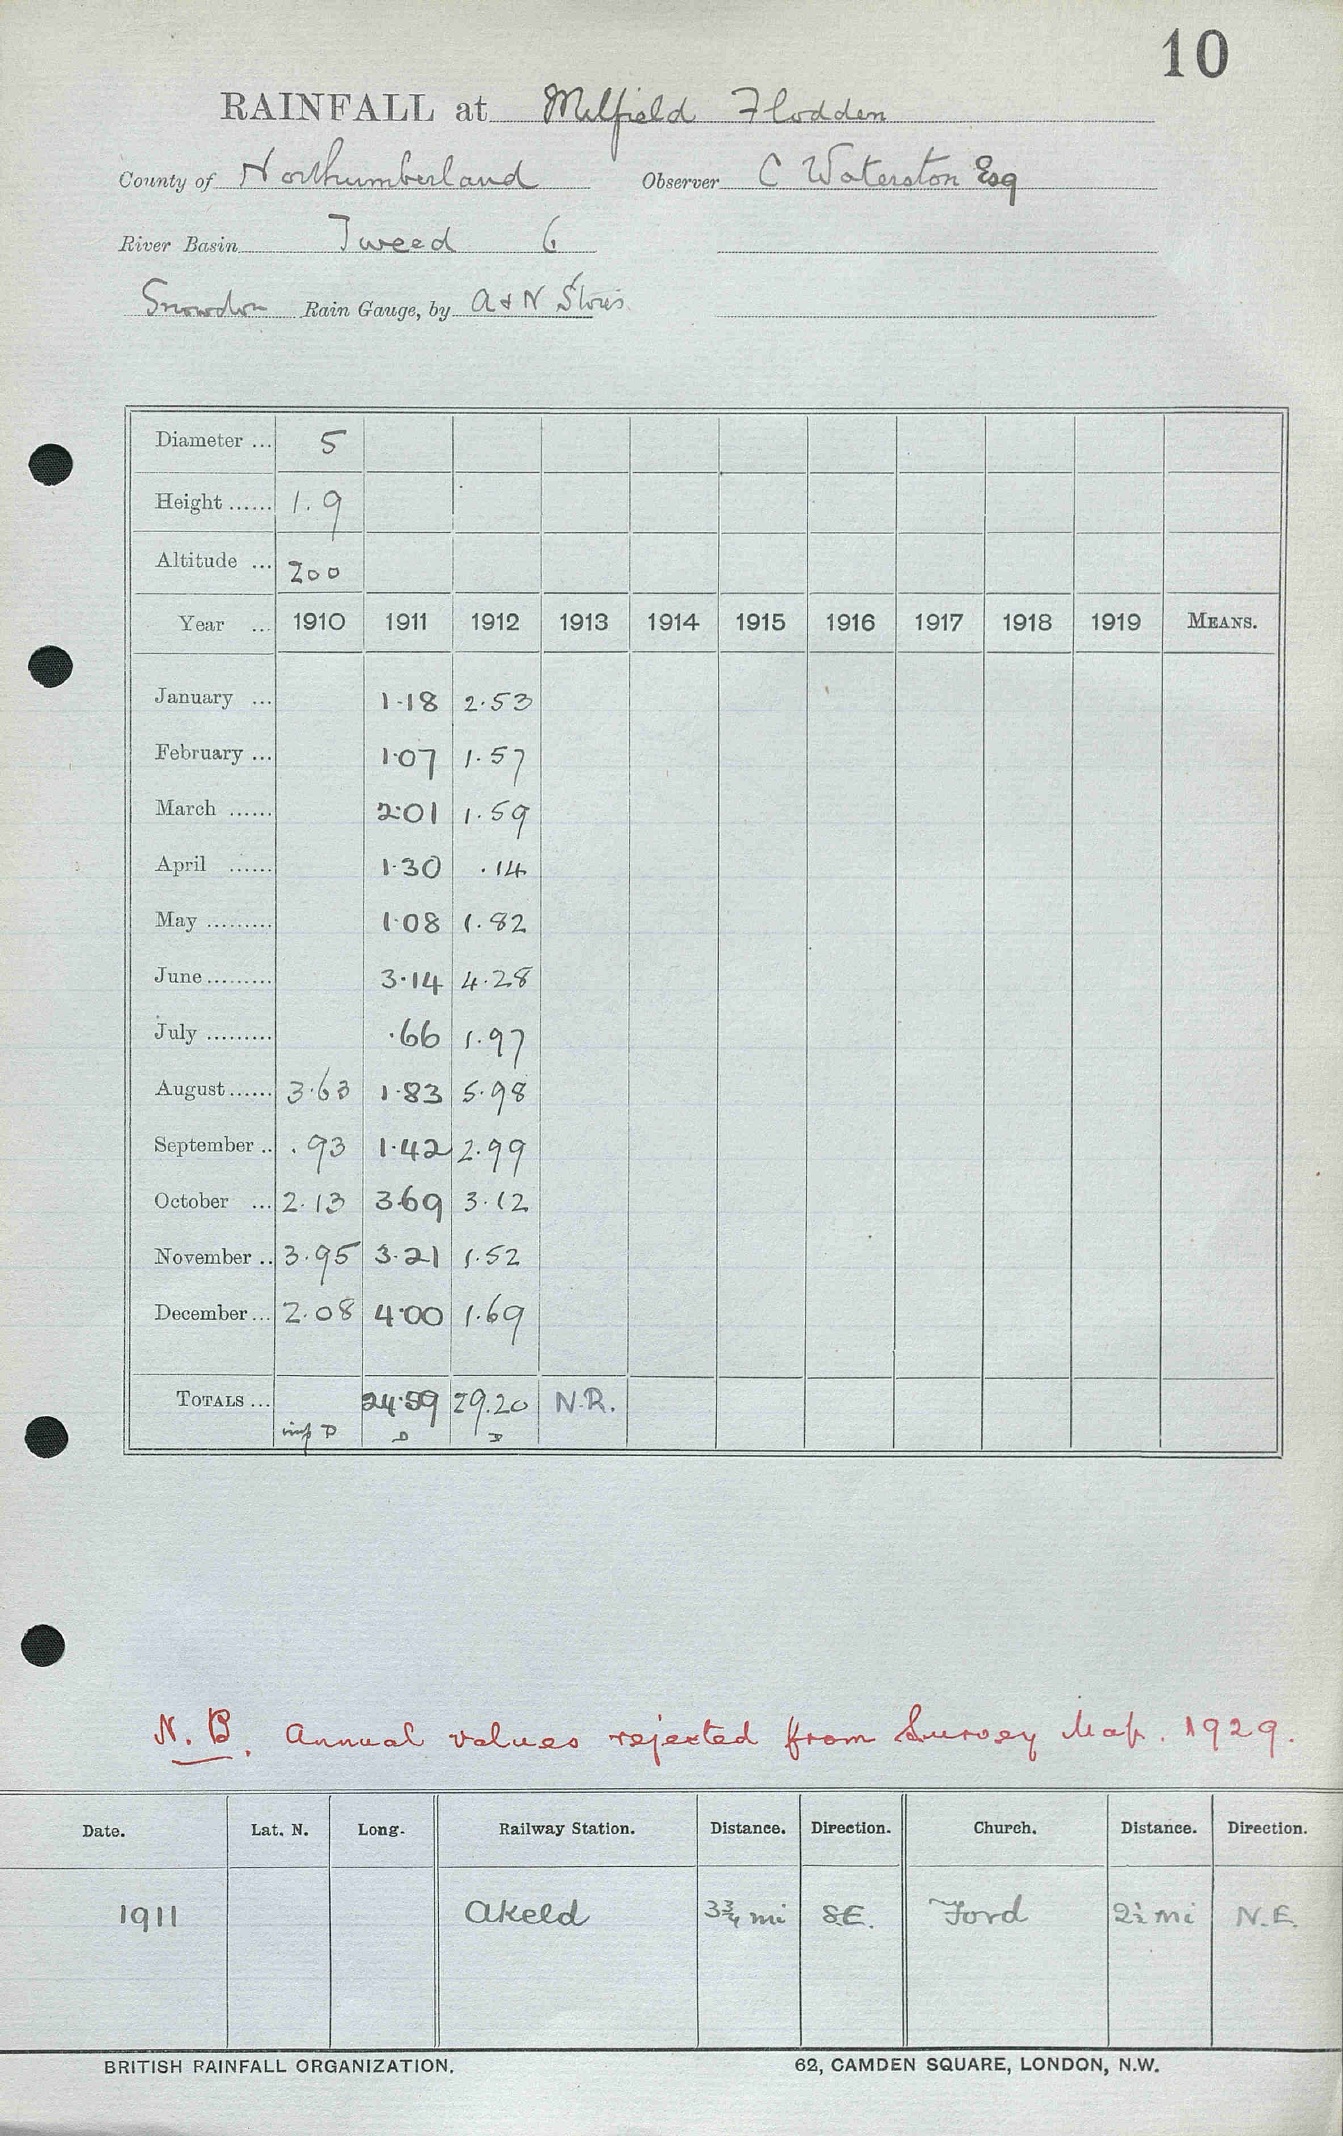 10
RAINFALL at Milfield Flodden
County of Northumberland Observer C Waterston Esq
River Basin Tweed 6
Snowdon Rain Gauge, by A & N Stores
Diameter ... 5
Height ...... 1.9
Altitude ... 200
Year ... 1910 1911 1912 1913 1914 1915 1916 1917 1918 1919 MEANS.
January ... 1.18 2.53
February ... 1.07 1.57
March ...... 2.01 1.59
April ...... 1.30 .14
May ......... 1.08 1.82
June ......... 3.14 4.28
July ......... .66 1.97
August ...... 3.63 1.83 5.98
September .. .93 1.42 2.99
October ... 2.13 3.69 3.12
November .. 3.95 3.21 1.52
December ... 2.08 4.00 1.69
TOTALS ... 24.59 29.20 N.R.
inf D D D
N.B. Annual values rejected from Survey Map. 1929.
Date. Lat. N. Long. Railway Station. Distance. Direction. Church. Distance. Direction.
1911 Akeld 3¾ mi S.E. Ford 2½ mi N.E.
BRITISH RAINFALL ORGANIZATION. 62, CAMDEN SQUARE, LONDON, N.W.